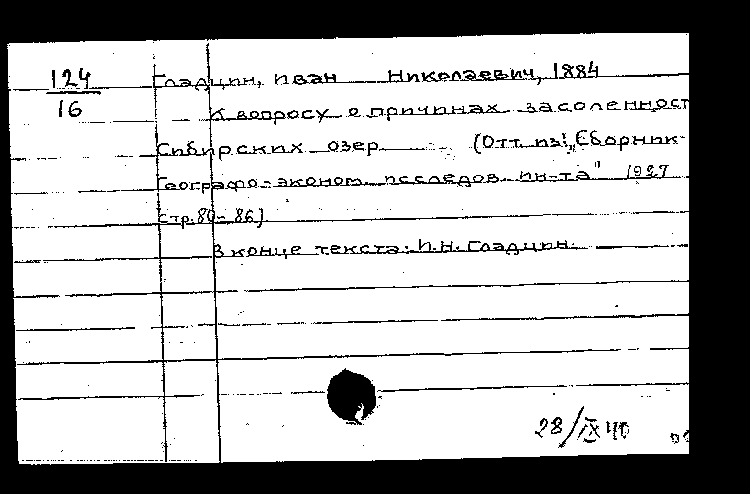 124
16
Гладцин, Иван Николаевич, 1884
К вопросу о причинах засоленност
Сибирских озер (Отт. из: „Сборник
Географо-эконом. исследов. ин-та" 1927
стр. 80-86)
В конце текста: И.Н. Гладцин.
28/IX 40